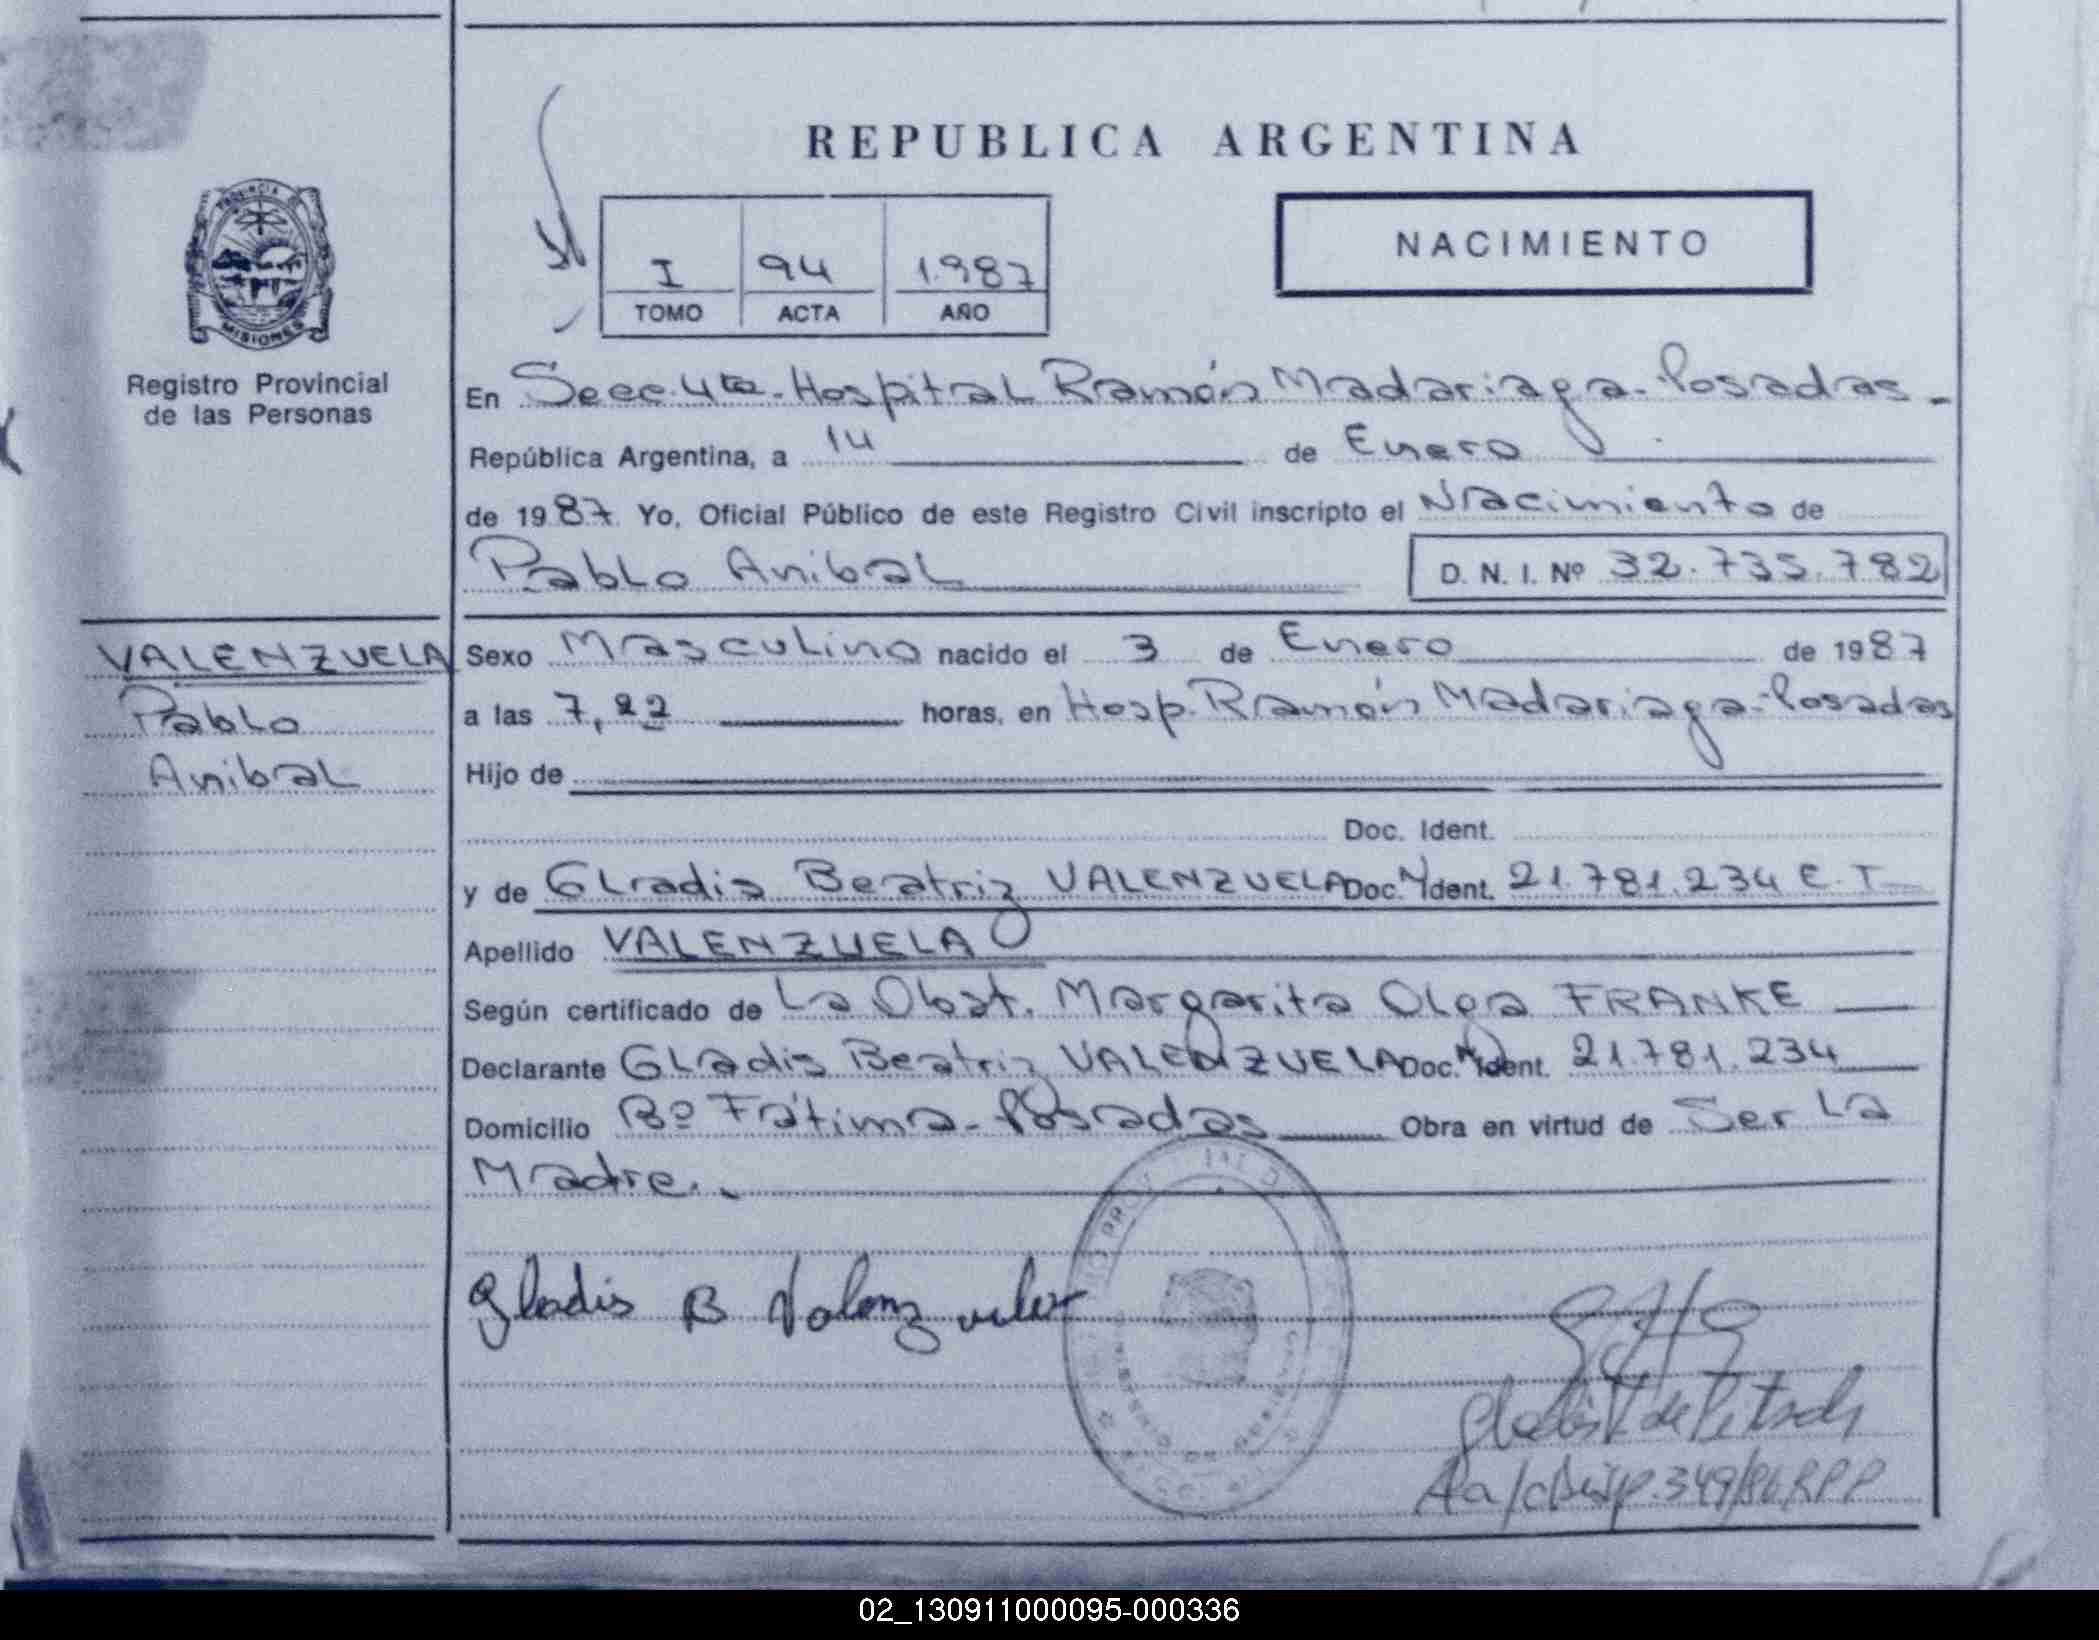 REPUBLICA ARGENTINA
PROVINCIA
MISIONES
Registro Provincial
de las Personas
I 94 1.987
TOMO ACTA AÑO
NACIMIENTO
En Secc. 4ta. Hospital Ramón Madariaga - Posadas. -
República Argentina, a 14 de Enero
de 1987. Yo, Oficial Público de este Registro Civil inscripto el Nacimiento de
Pablo Anibal D. N. I. Nº 32.735.782
VALENZUELA
Pablo
Anibal
Sexo Masculino nacido el 3 de Enero de 1987
a las 7,22 horas, en Hosp. Ramón Madariaga - Posadas
Hijo de
Doc. Ident.
y de Gladis Beatriz VALENZUELA Doc. Ident. 21.781.234 C. T
Apellido VALENZUELA
Según certificado de La Obst. Margarita Olga FRANKE
Declarante Gladis Beatriz VALENZUELA Doc. Ident. 21.781.234
Domicilio Bº Fátima - Posadas Obra en virtud de Ser La
Madre. -
Gladis B Valenzuela
02_130911000095-000336